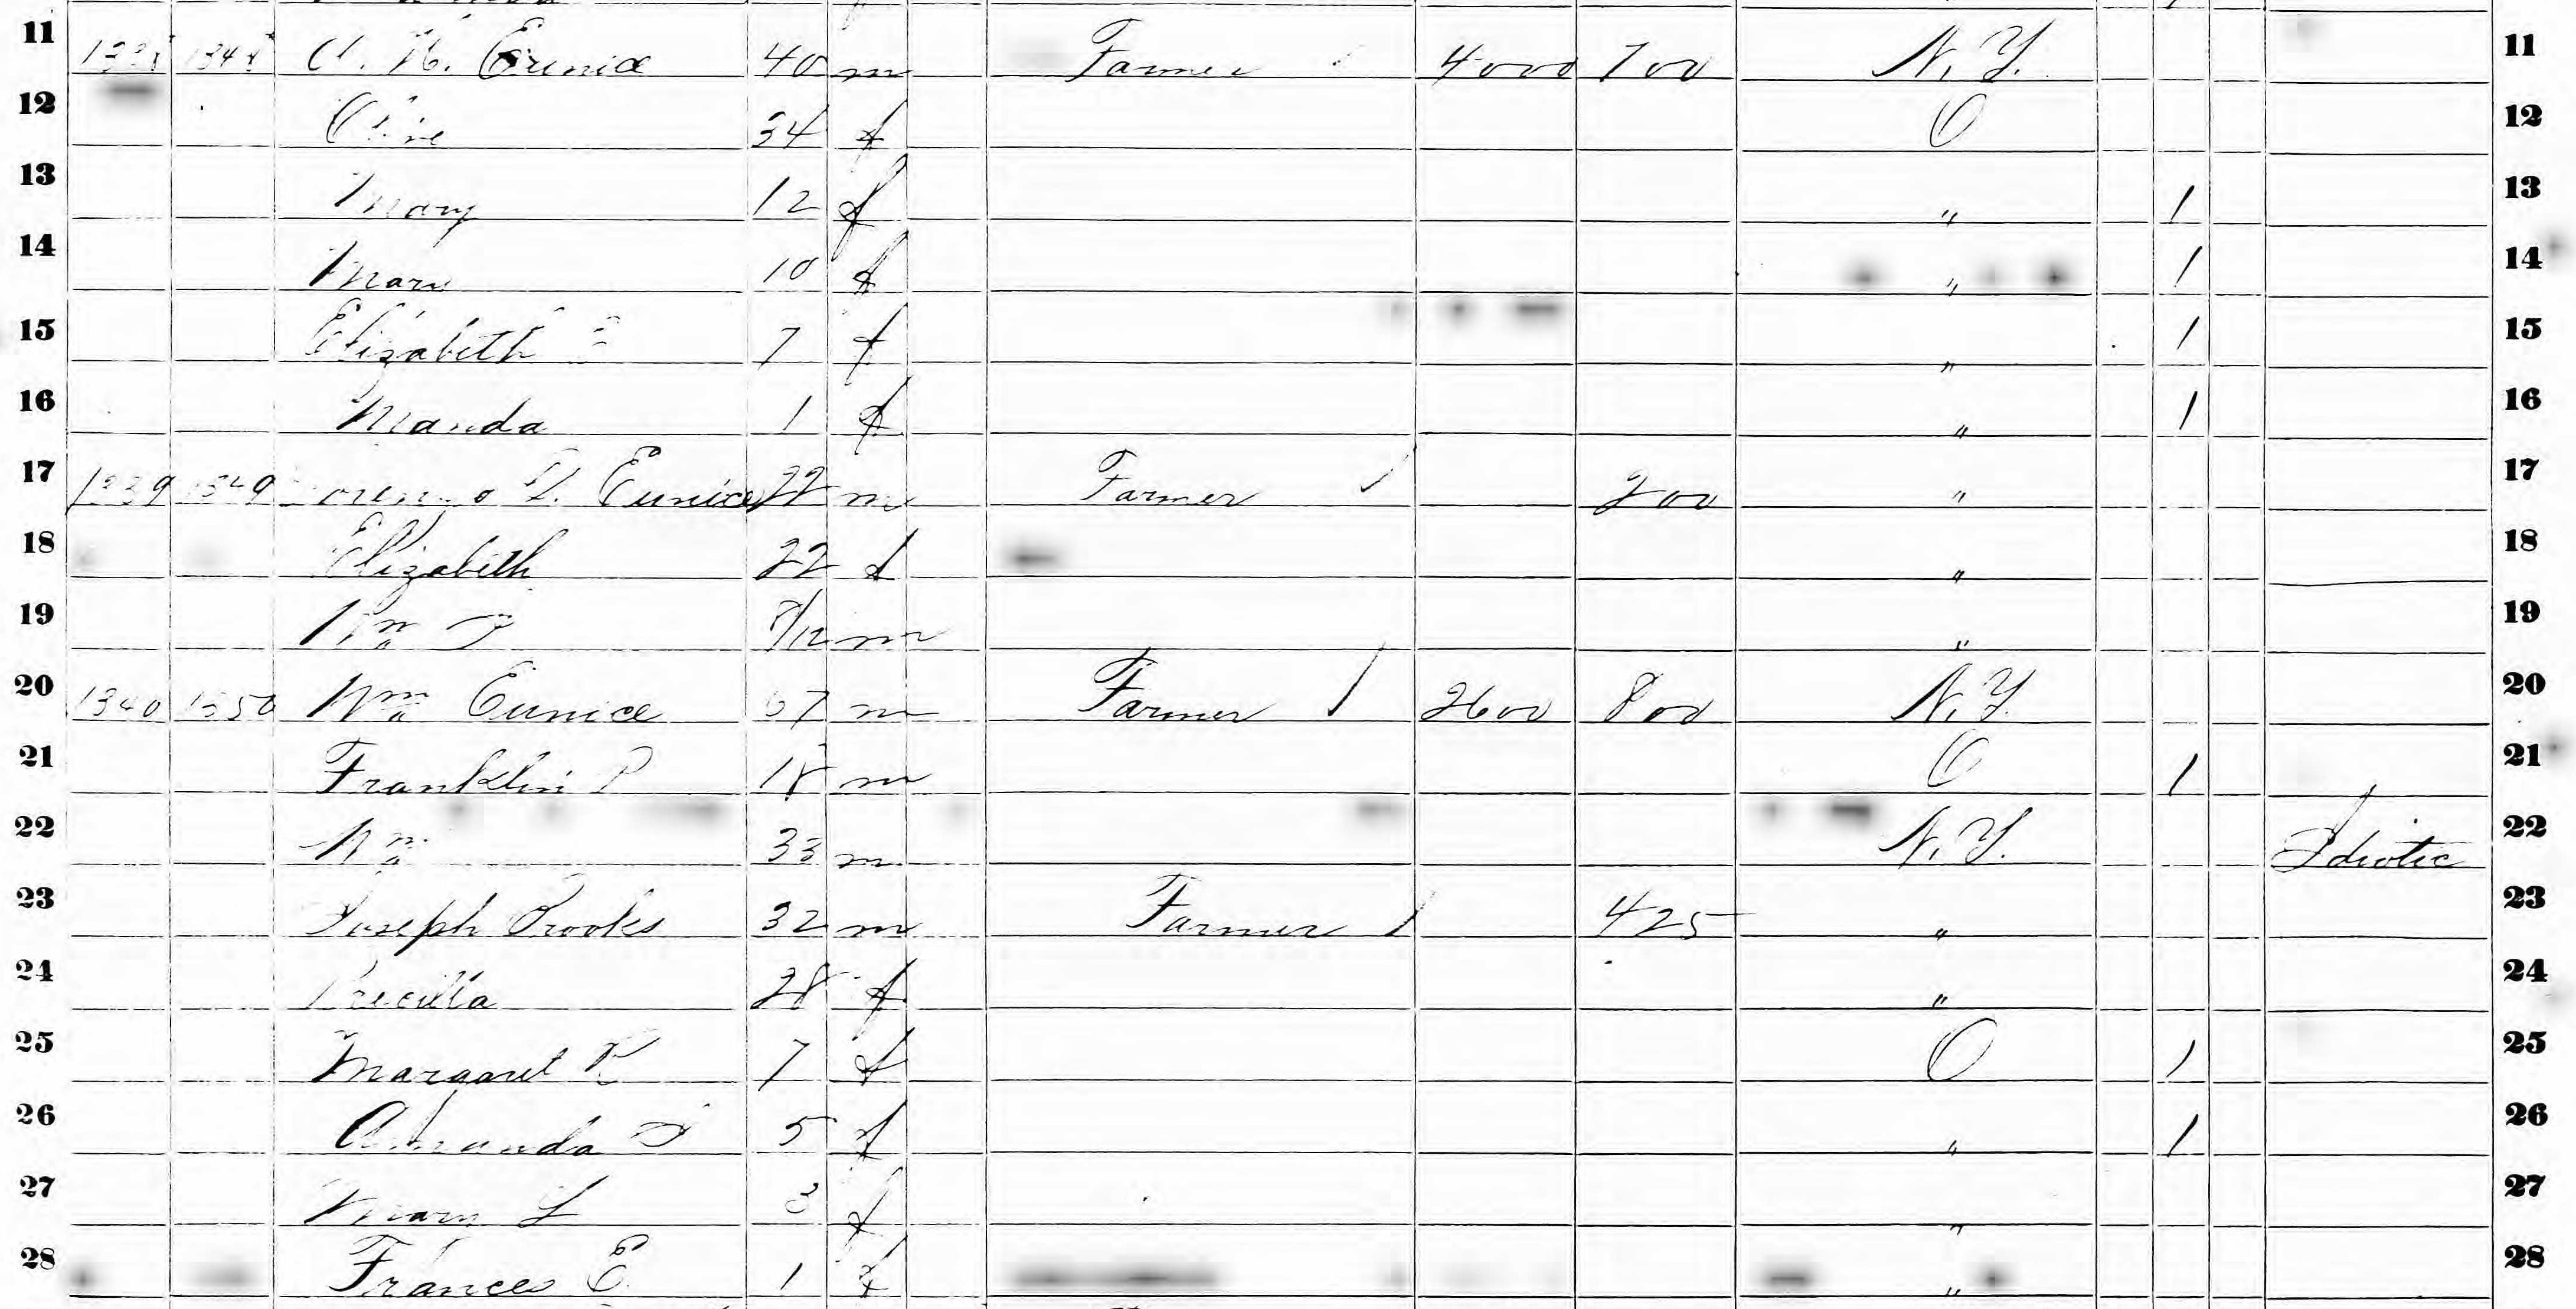 11 1338 1348 A. H. Eunice 40 m Farmer 4000 700 N. Y. 11
12 Olive 34 f O 12
13 Mary 12 f " 1 13
14 10 f " 1 14
15 Elizabeth 7 f " 1 15
16 Manda 1 f " 1 16
17 1339 1349 Lorenzo D. Eunice 22 m Farmer 200 " 17
18 Elizabeth 22 f " 18
19 Wm /12 m " 19
20 1340 1350 Wm Eunice 67 m Farmer 2600 800 N. Y. 20
21 Franklin P 18 m O 1 21
22 Wm 33 m N. Y. Idiotic 22
23 Joseph Brooks 32 m Farmer 425 " 23
24 Precilla 28 f " 24
25 Margaret R 7 f O 1 25
26 Amanda 5 f " 1 26
27 Mary L 3 f " 27
28 Frances E. 1 f " 28